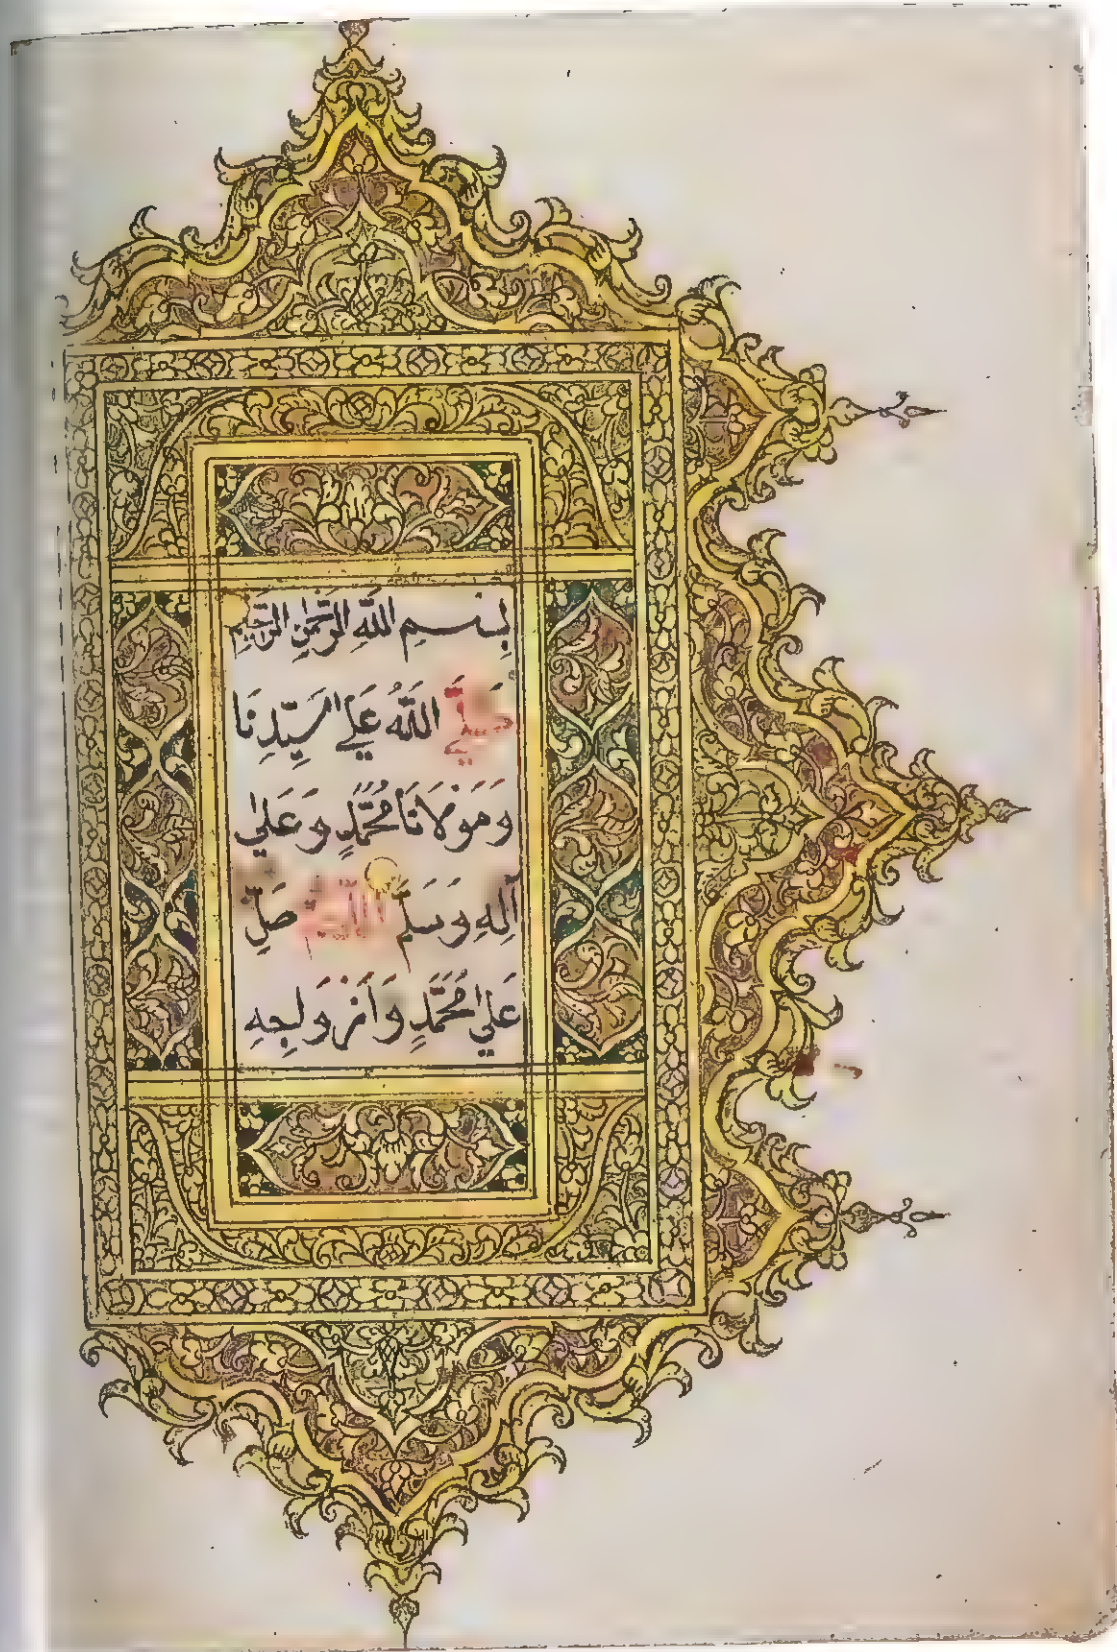 بِسْمِ اللَّهِ الرَّحْمٰنِ الرَّحِيمِ
صَلَّى اللَّهُ عَلَى سَيِّدِنَا
وَمَوْلَانَا مُحَمَّدٍ وَعَلَى
آلِهِ وَسَلَّم اللَّهُمَّ صَلِّ
عَلَى مُحَمَّدٍ وَأَزْوَاجِهِ